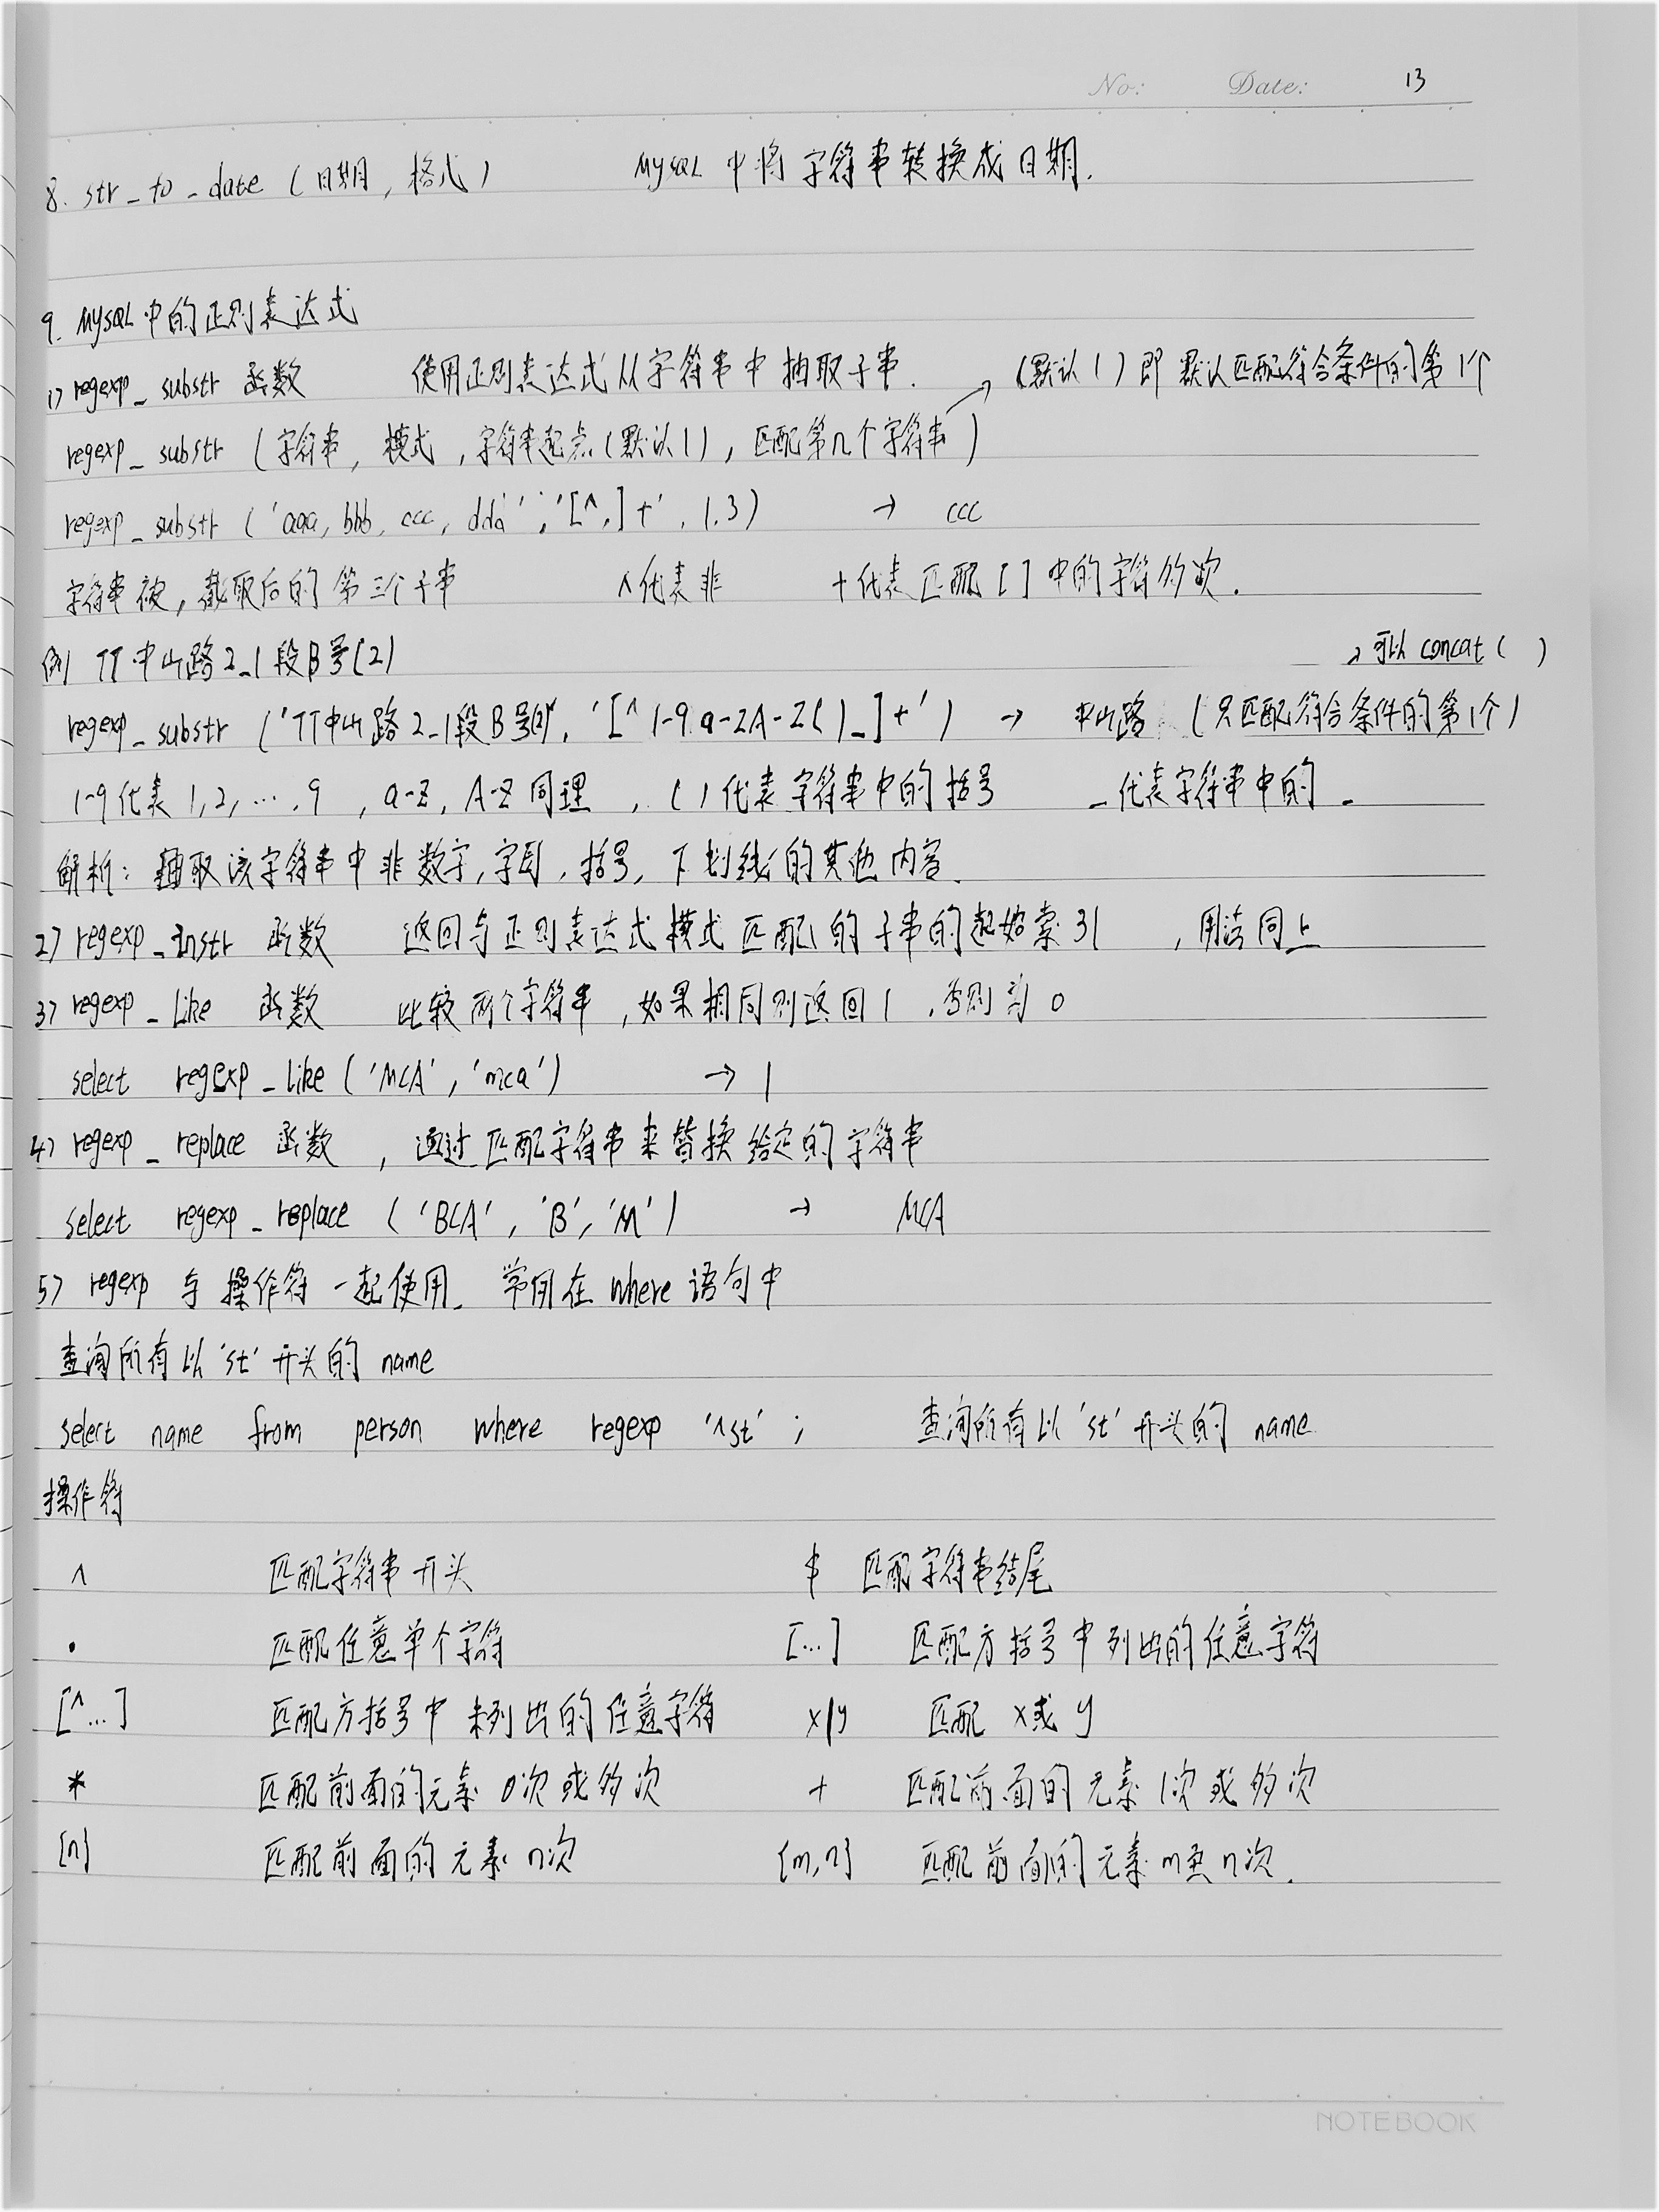 No: Date: 13
8. str_to_date (日期, 格式) MySQL 中将字符串转换成日期.
9. MySQL 中的正则表达式
1) regexp_substr 函数 使用正则表达式从字符串中抽取子串. → (默认1) 即默认匹配符合条件的第1个
regexp_substr (字符串, 模式, 字符串起点(默认1), 匹配第几个字符串)
regexp_substr ('aaa, bbb, ccc, ddd', '[^,]+', 1, 3) → ccc
字符串被, 截取后的第三个子串 ^代表非 +代表匹配[]中的字符多次.
例 TT中山路2_1段B号(2) → 可以 concat ( )
regexp_substr ('TT中山路2_1段B号(2)', '[^1-9a-zA-Z()_]+') → 中山路 (只匹配符合条件的第1个)
1-9代表1,2,…,9, a-z, A-Z同理, ()代表字符串中的括号 _代表字符串中的_
解析: 抽取该字符串中非数字, 字母, 括号, 下划线的其他内容.
2) regexp_Instr 函数 返回与正则表达式模式匹配的子串的起始索引, 用法同上
3) regexp_Like 函数 比较两个字符串, 如果相同则返回1, 否则为0
select regexp_like ('MCA', 'mca') → 1
4) regexp_replace 函数, 通过匹配字符串来替换给定的字符串
select regexp_replace ('BCA', 'B', 'M') → MCA
5) regexp 与操作符一起使用. 常用在where语句中
查询所有以'st'开头的 name
select name from person where regexp '^st'; 查询所有以'st'开头的 name
操作符
^ 匹配字符串开头 $ 匹配字符串结尾
. 匹配任意单个字符 [...] 匹配方括号中列出的任意字符
[^...] 匹配方括号中未列出的任意字符 x|y 匹配 x或y
* 匹配前面的元素0次或多次 + 匹配前面的元素1次或多次
{n} 匹配前面的元素n次 {m,n} 匹配前面的元素m至n次.
NOTEBOOK